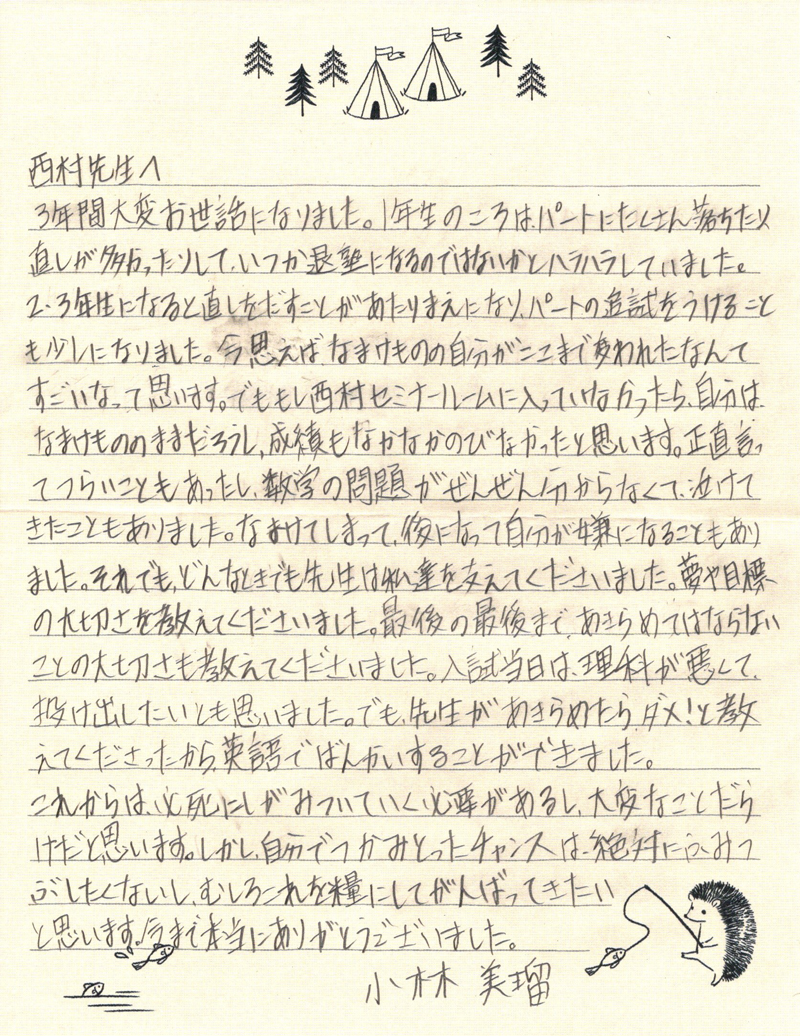 西村先生へ
3年間大変お世話になりました。1年生のころは、パートにたくさん落ちたり
直しが多かったりして、いつか退塾になるのではないかとハラハラしていました。
2、3年生になると直しをだすことがあたりまえになり、パートの追試をうけること
も少しになりました。今思えば、なまけものの自分がここまで変われたなんて
すごいなって思います。でももし西村セミナールームに入っていなかったら、自分は、
なまけもののままだろうし、成績もなかなかのびなかったと思います。正直言っ
てつらいこともあったし、数学の問題がぜんぜん分からなくて、泣けて
きたこともありました。なまけてしまって、後になって自分が嫌になることもあり
ました。それでも、どんなときでも先生は私達を支えてくださいました。夢や目標
の大切さを教えてくださいました。最後の最後まで、あきらめてはならない
ことの大切さも教えてくださいました。入試当日は、理科が悪くて、
投げ出したいとも思いました。でも、先生があきらめたらダメ!と教
えてくださったから、英語でばんかいすることができました。
これからは、必死にしがみついていく必要があるし、大変なことだら
けだと思います。しかし、自分でつかみとったチャンスは、絶対にふみつ
ぶしたくないし、むしろこれを糧にしてがんばってきたい
と思います。今まで本当にありがとうございました。
小林 美瑠